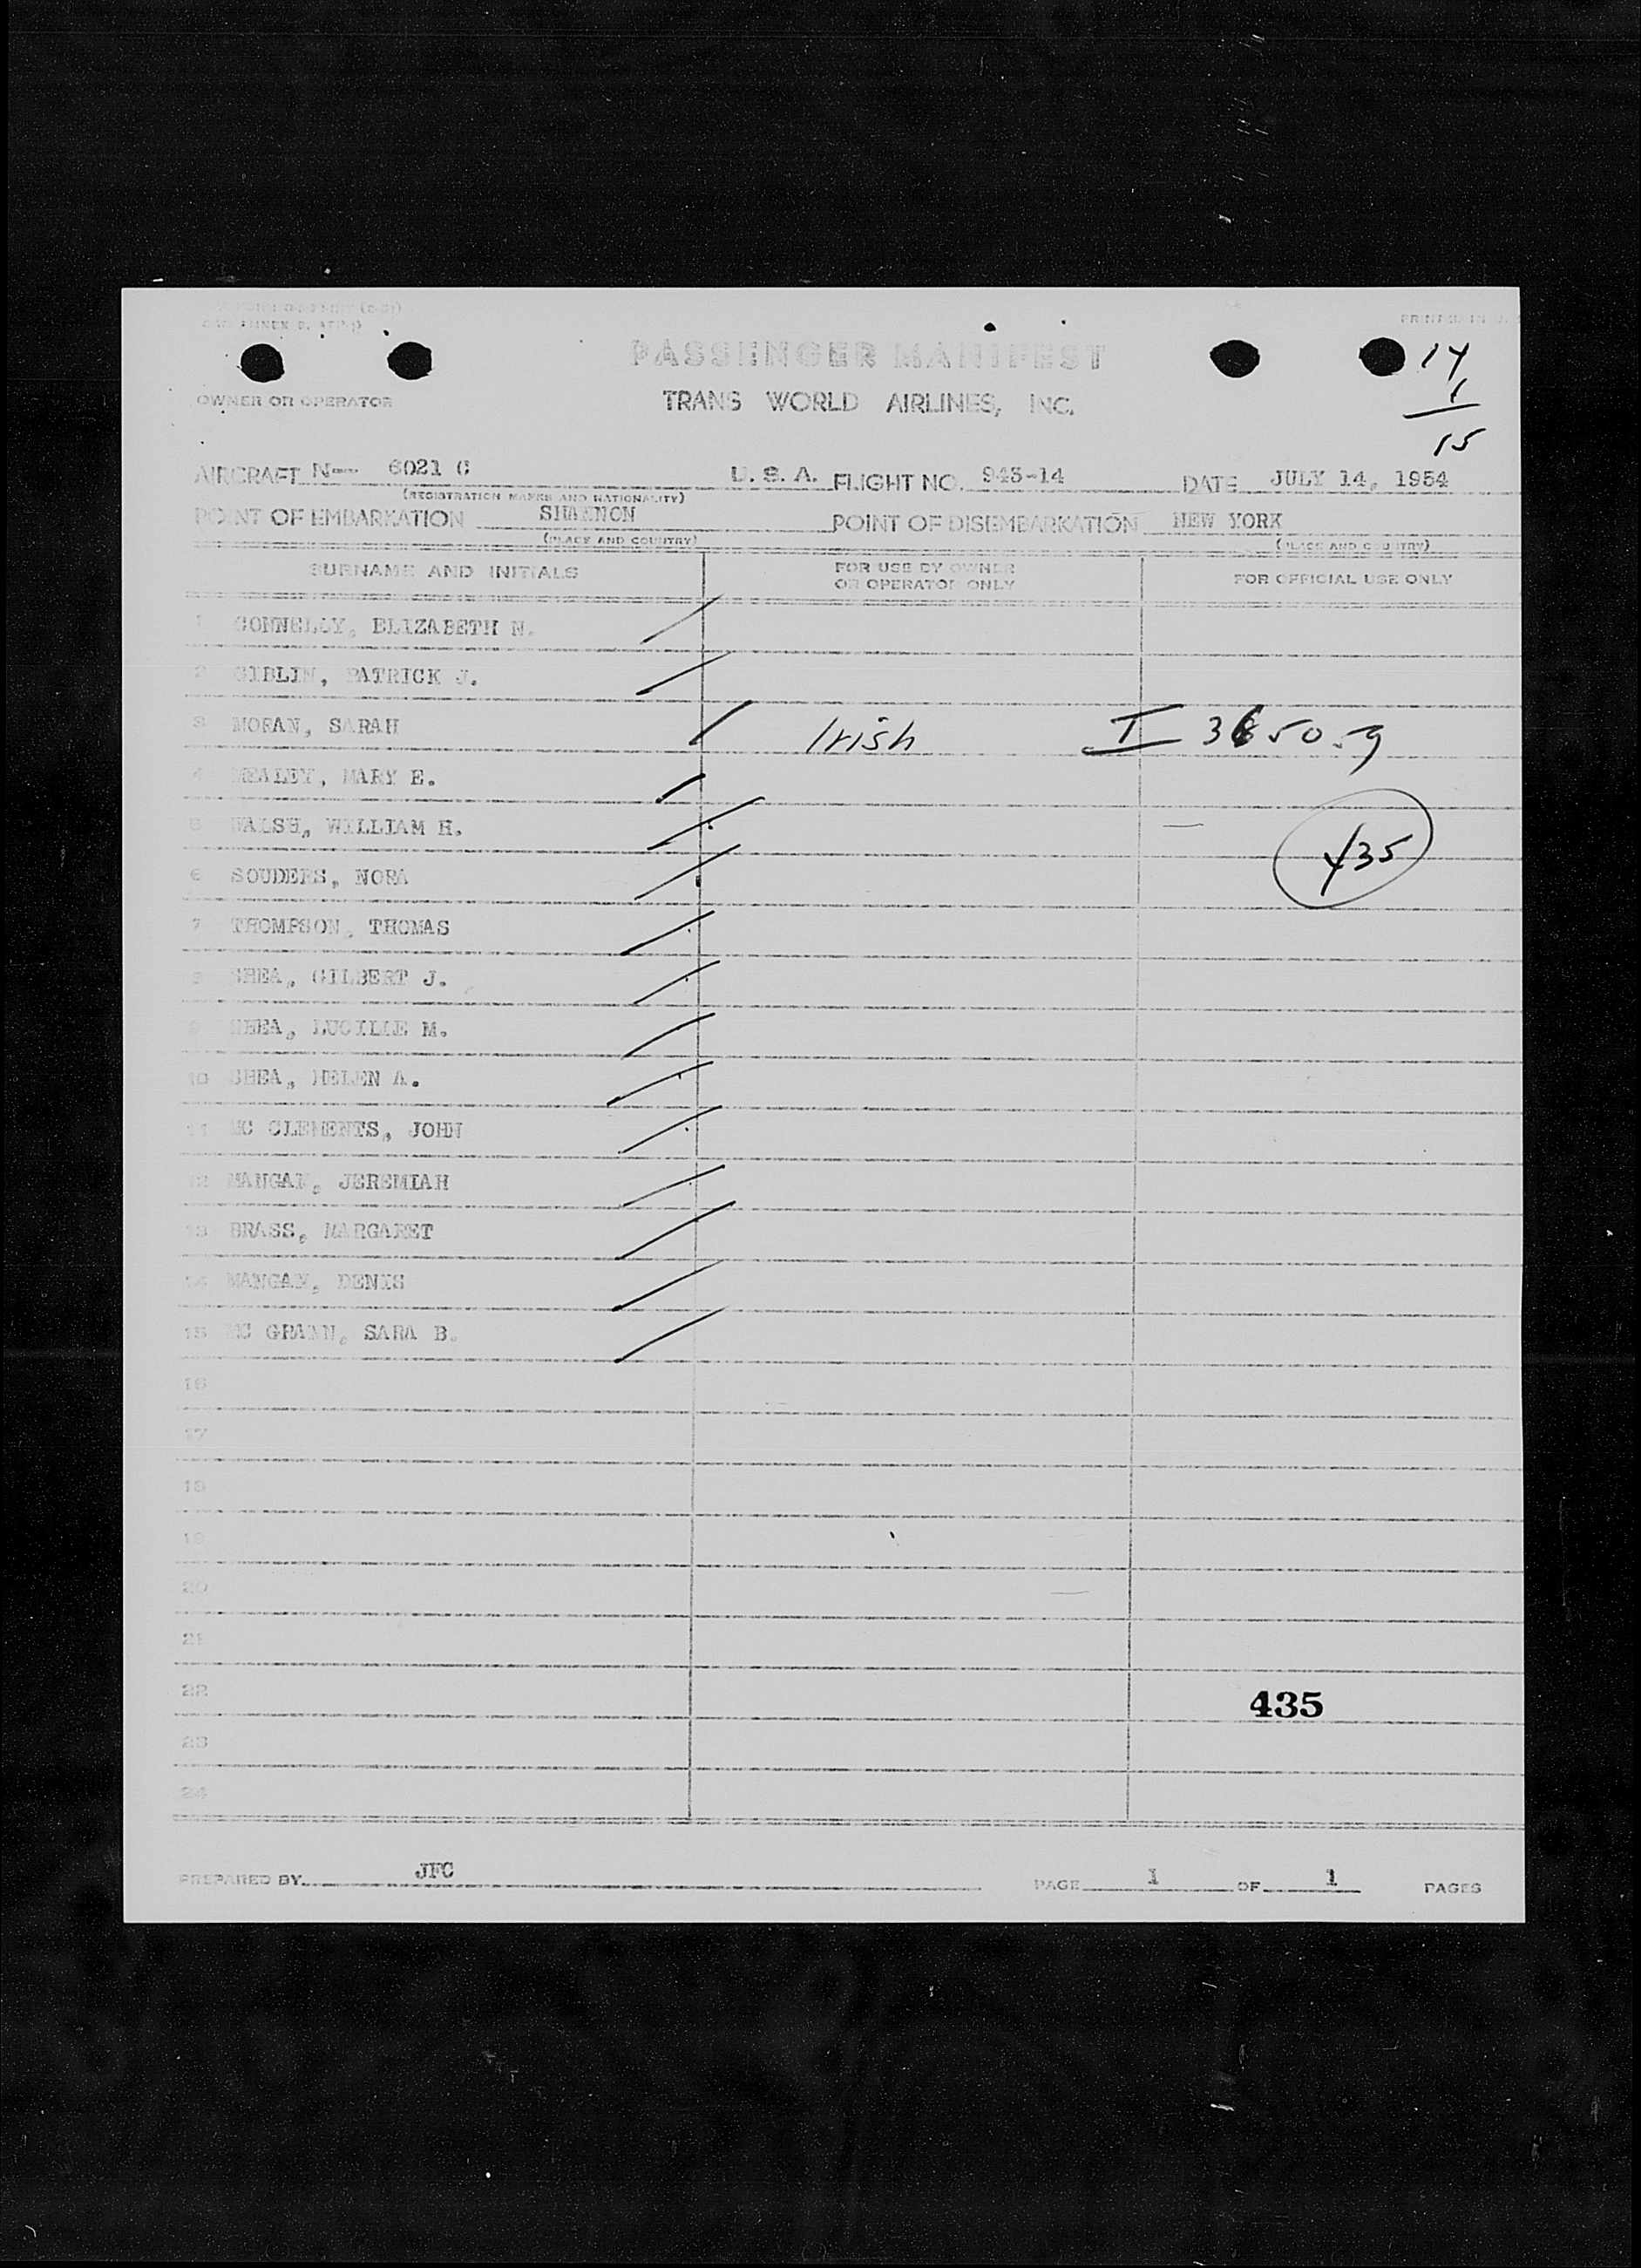 PASSENGER MANIFEST
OWNER OR OPERATOR
TRANS WORLD AIRLINES, INC.
14
1
15
AIRCRAFT N-- 6021 C U. S. A. FLIGHT NO. 943-14 DATE JULY 14, 1954
(REGISTRATION MARKS AND NATIONALITY)
POINT OF EMBARKATION SHANNON POINT OF DISEMBARKATION NEW YORK
(PLACE AND COUNTRY) (PLACE AND COUNTRY)
SURNAME AND INITIALS FOR USE BY OWNER OR OPERATOR ONLY FOR OFFICIAL USE ONLY
1 CONNELLY, ELIZABETH N.
2 GIBLIN, PATRICK J.
3 MORAN, SARAH Irish I 365059
4 MEALEY, MARY E.
5 WALSH, WILLIAM H.
435
6 SOUDERS, NORA
7 THOMPSON, THOMAS
8 SHEA, GILBERT J.
9 SHEA, LUCILLE M.
10 SHEA, HELEN A.
11 MC CLEMENTS, JOHN
12 MANGAN, JEREMIAH
13 BRASS, MARGARET
14 MANGAN, DENIS
15 MC GRAIN, SARA B.
16
17
18
19
20
21
22 435
23
24
PREPARED BY JFC PAGE 1 OF 1 PAGES